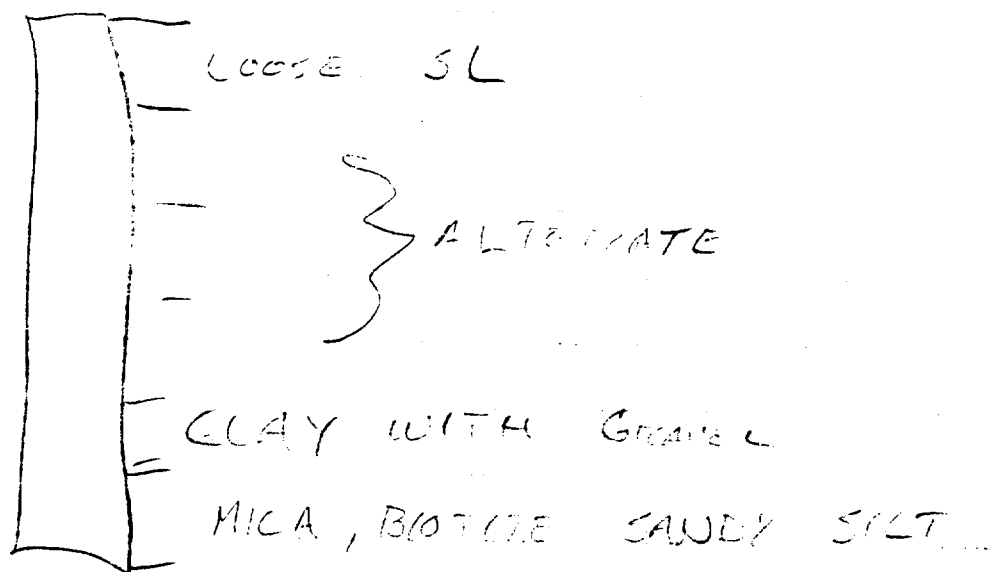 LOOSE SL
ALTERNATE
CLAY WITH GRAVEL
MICA, BIOTITE SANDY SILT